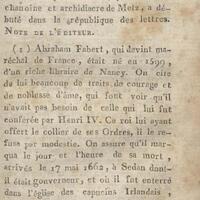 chanoine et archidiacre de Metz, a dé-
buté dans la république des lettres.
NOTE DE L'ÉDITEUR.
(1) Abraham Fabert, qui devint ma-
réchal de France, était né en 1599,
d'un riche libraire de Nancy. On cite
de lui beaucoup de traits de courage et
de noblesse d'âme, qui font voir qu'il
n'avait pas besoin de celle qui lui fut
conférée par Henri IV. Ce roi lui ayant
offert le collier de ses Ordres, il le re-
fusa par modestie. On assure qu'il mar-
qua le jour et l'heure de sa mort,
arrivés le 17 mai 1662, à Sedan dont
il était gouverneur, et où il fut enterré
dans l'église des capucins Irlandais